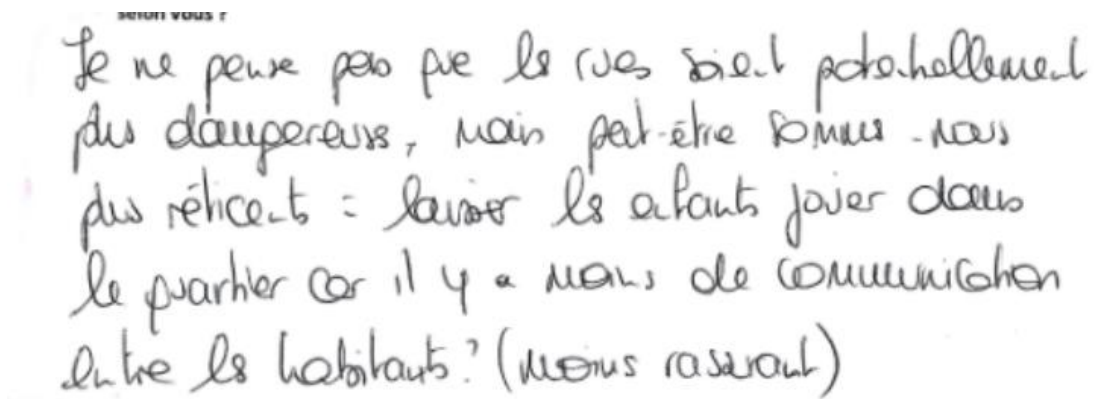 selon vous ?
Je ne pense pas que les rues soient potentiellement
plus dangereuses, mais peut-être sommes-nous
plus réticents = laisser les enfants jouer dans
le quartier car il y a moins de communication
entre les habitants? (moins rassurant)